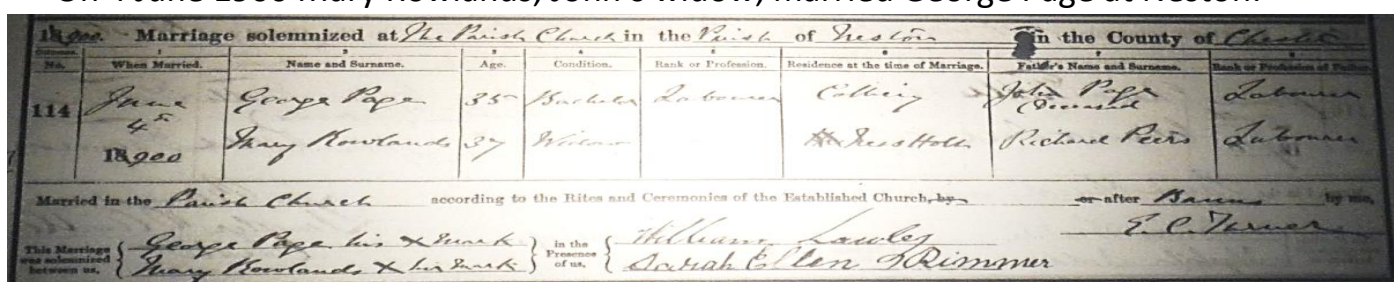 On 4 June 1900 Mary Rowlands, John's widow, married George Page at Neston.
1900. Marriage solemnized at The Parish Church in the Parish of Neston in the County of Chester
No. When Married. Name and Surname. Age. Condition. Rank or Profession. Residence at the time of Marriage. Father's Name and Surname. Rank or Profession of Father.
114 June 4th 1900 George Page 35 Bachelor Labourer Colliery John Page (Deceased) Labourer
Mary Rowlands 37 Widow Ness Holt Richard Peers Labourer
Married in the Parish Church according to the Rites and Ceremonies of the Established Church, by or after Banns by me,
This Marriage was solemnized between us, George Page his x mark in the Presence of us, William Lawley E. C. Turner
Mary Rowlands x her mark Sarah Ellen Rimmer